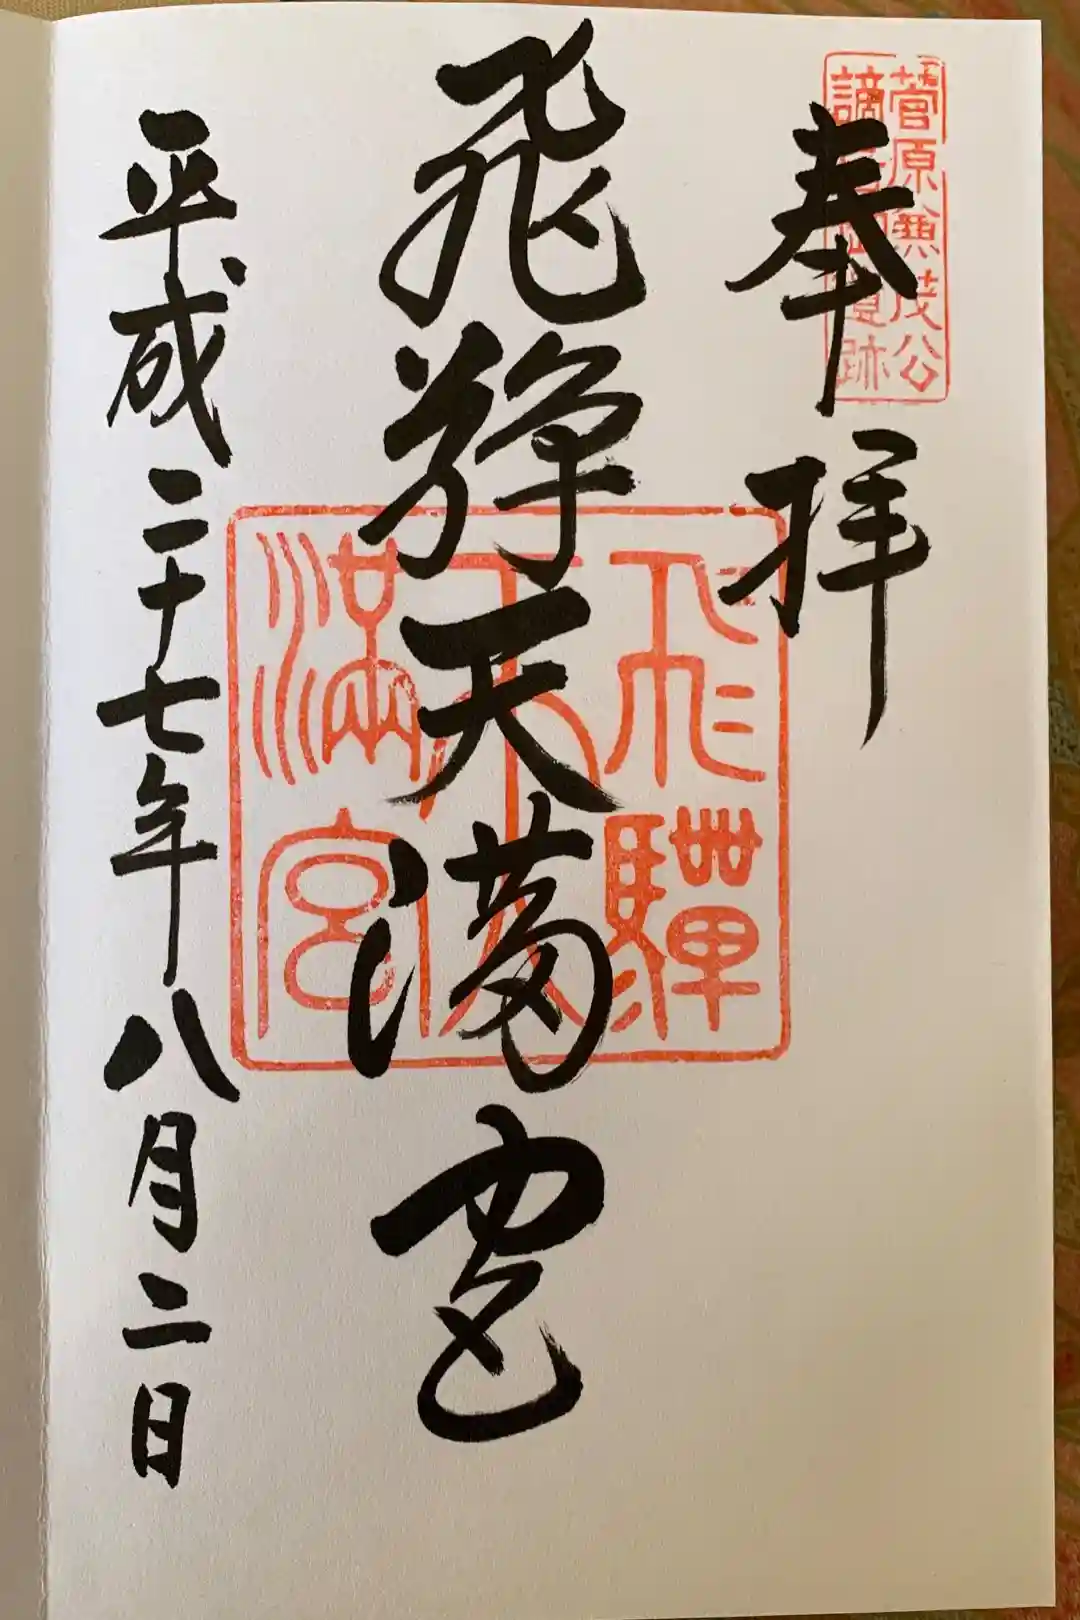 菅原兼茂公
謫居御遺跡
奉拝
飛騨天満宮
飛驒
天
満宮
平成二十七年八月二日